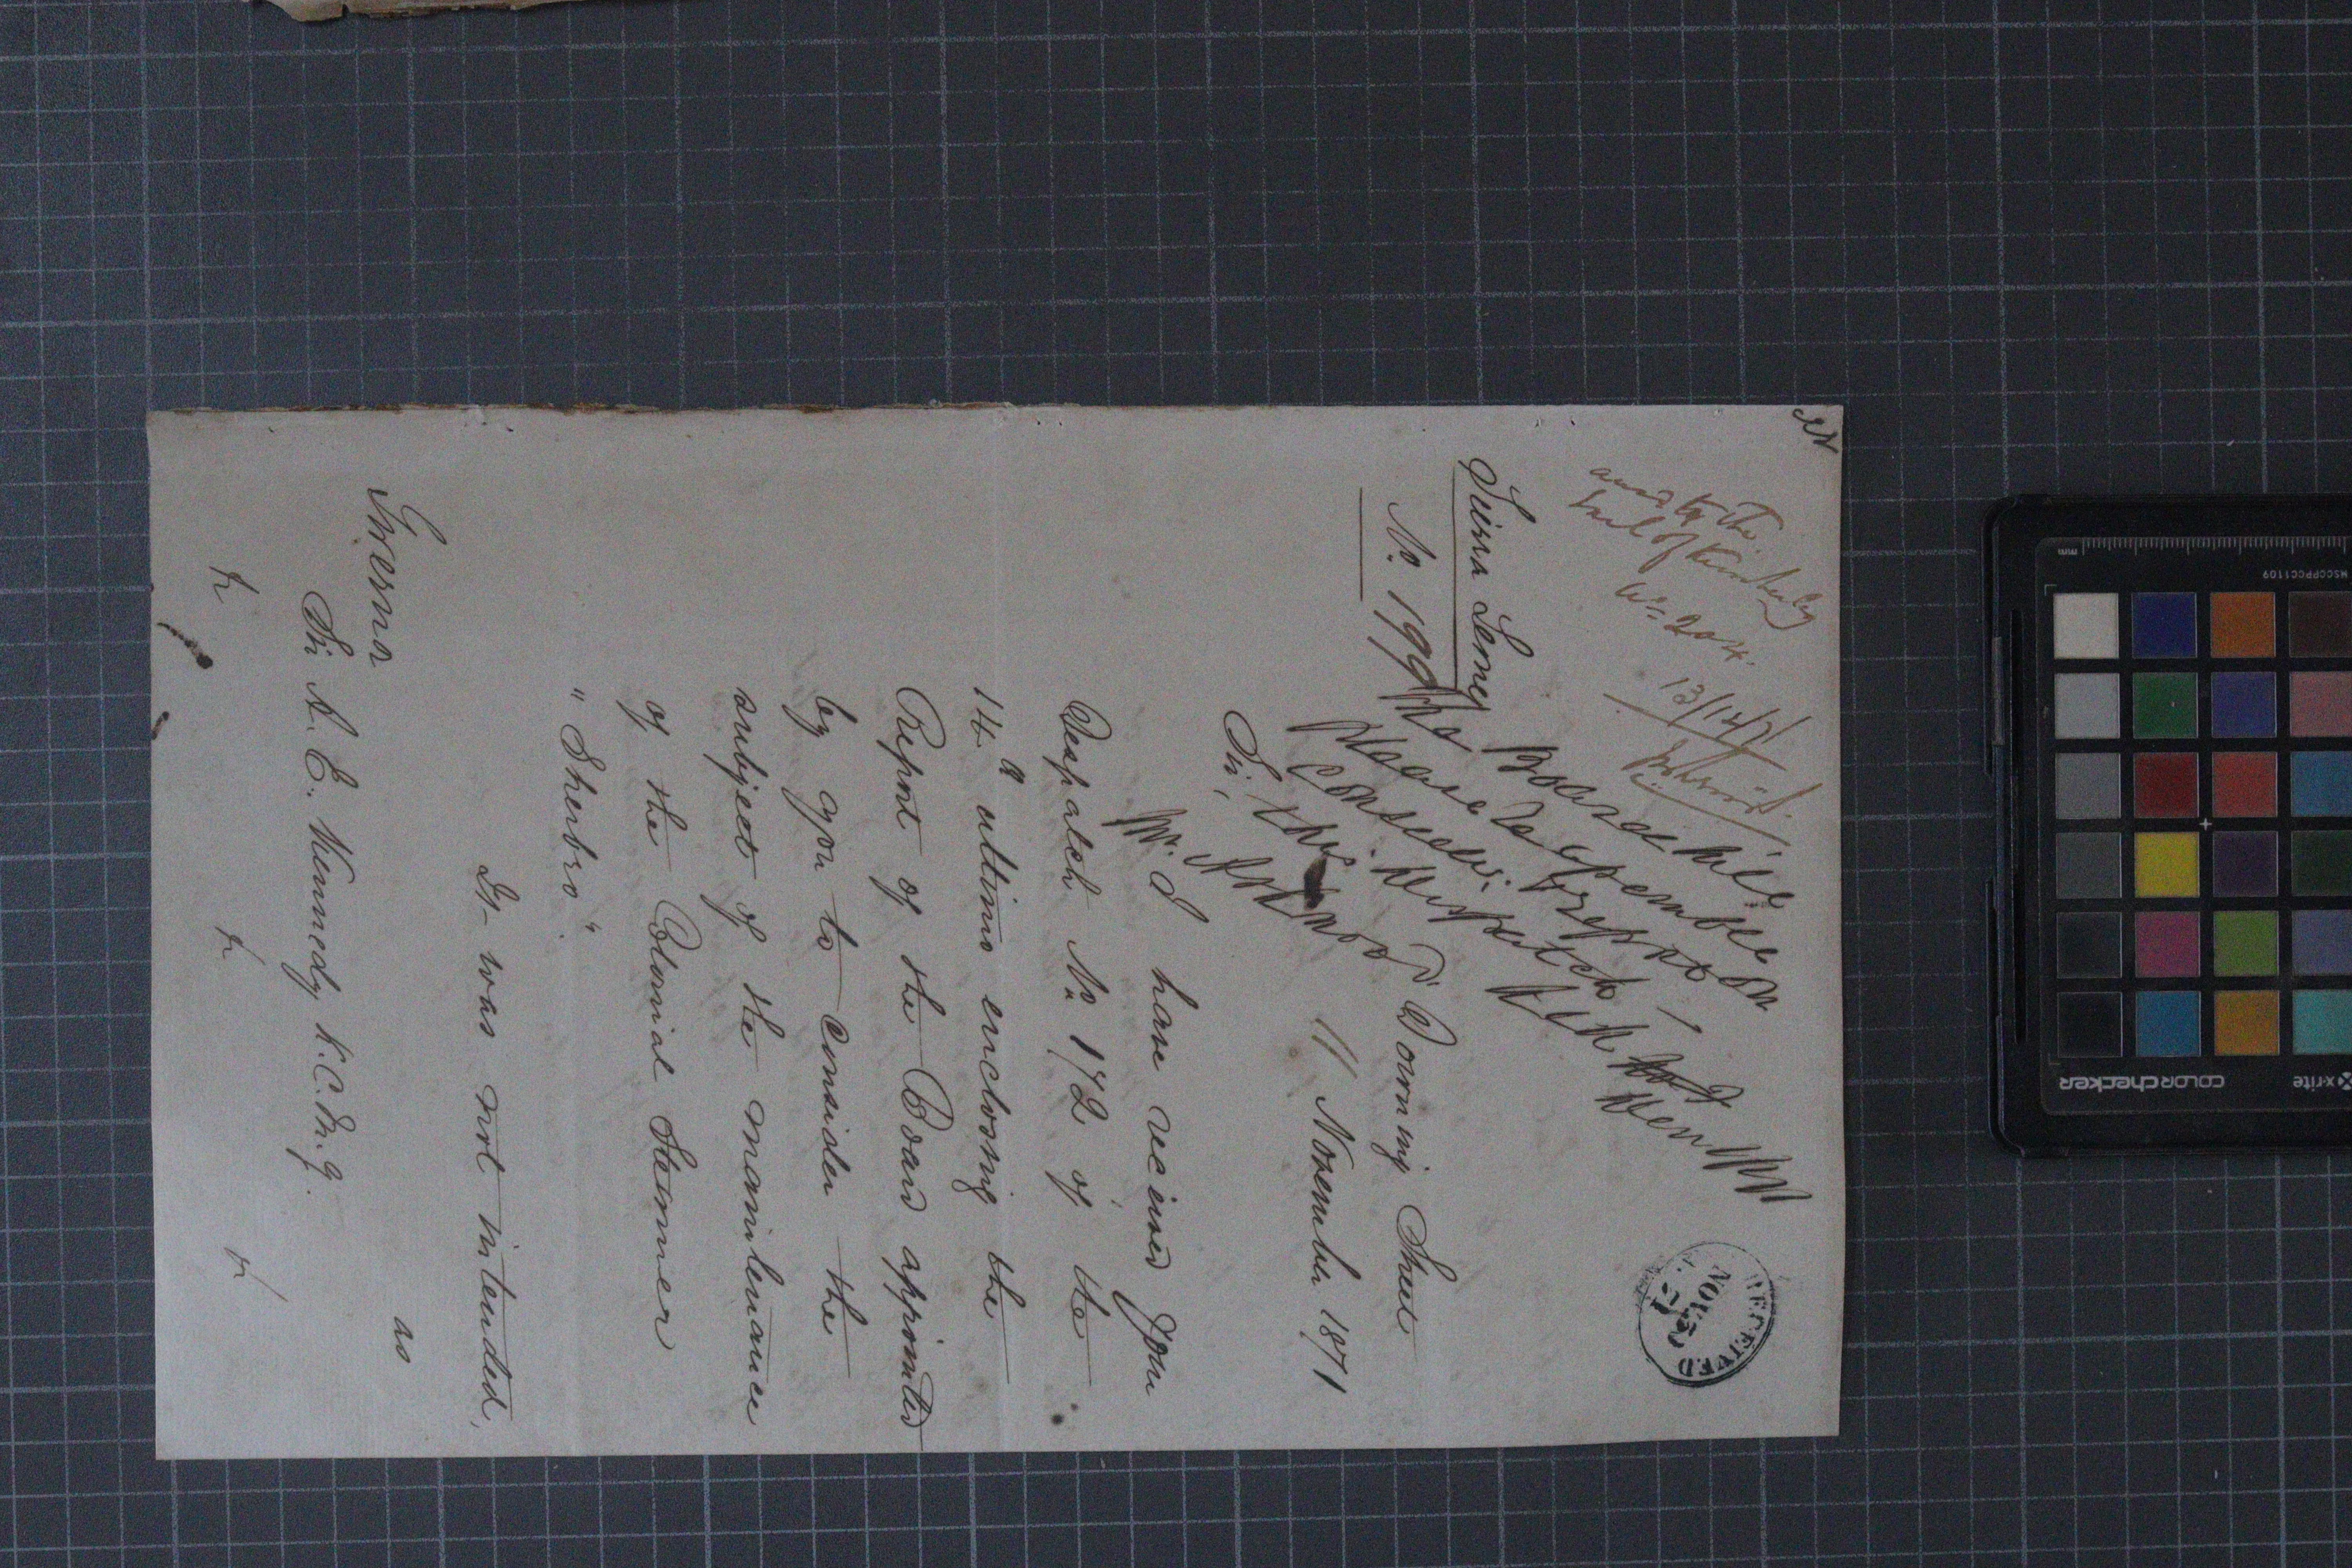 ansd to the
Earl of Kimberley
No. 204.
13/12/71
RECEIVED
NOV 29
71
Sierra Leone
No. 199
The Board will
please to assemble
consider & report on
this despatch
Downing Street
11 November 1871
Sir,
I have received your
Despatch No. 172 of the
14th ultimo enclosing the
Report of the Board appointed
by you to consider the
subject of the maintenance
of the Colonial Steamer
"Sherbro".
It was not intended,
as
Governor
Sir A. E. Kennedy K.C.M.G.
MSCCPPCC1109
mm
x-rite
colorchecker